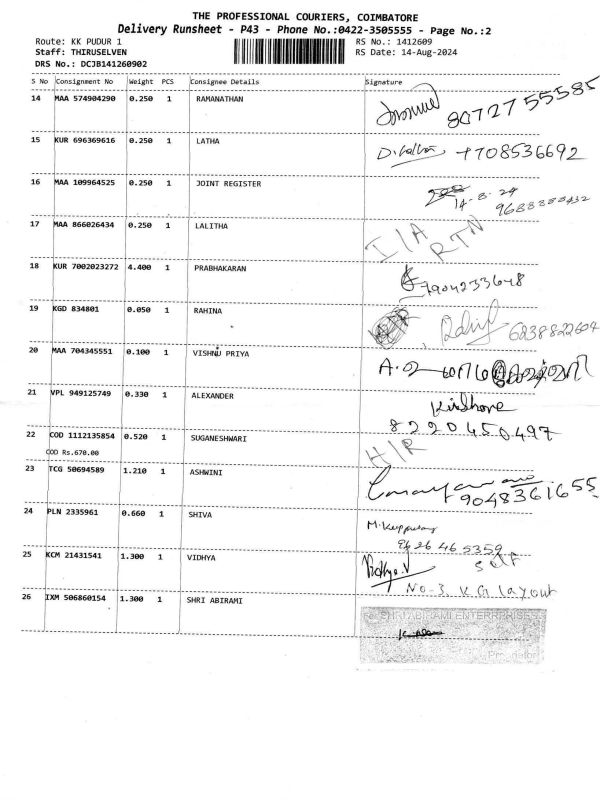 THE PROFESSIONAL COURIERS, COIMBATORE
Delivery Runsheet - P43 - Phone No.:0422-3505555 - Page No.:2
Route: KK PUDUR 1 RS No.: 1412609
Staff: THIRUSELVEN RS Date: 14-Aug-2024
DRS No.: DCJB141260902
S No Consignment No Weight PCS Consignee Details Signature
14 MAA 574904290 0.250 1 RAMANATHAN 8072755585
15 KUR 696369616 0.250 1 LATHA 7708536692
16 MAA 109964525 0.250 1 JOINT REGISTER 14-8-24
17 MAA 866026434 0.250 1 LALITHA I/A RTN
18 KUR 7002023272 4.400 1 PRABHAKARAN 7904233648
19 KGD 834801 0.050 1 RAHINA 6238822604
20 MAA 704345551 0.100 1 VISHNU PRIYA
21 VPL 949125749 0.330 1 ALEXANDER Kishore
8220450497
22 COD 1112135854 0.520 1 SUGANESHWARI H/R
COD Rs.670.00
23 TCG 50694589 1.210 1 ASHWINI 9048361655
24 PLN 2335961 0.660 1 SHIVA M.Kuppusamy
9626465359
25 KCM 21431541 1.300 1 VIDHYA Vidhya.V Self
No-3 K G layout
26 IXM 506860154 1.300 1 SHRI ABIRAMI
For SHRI ABIRAMI ENTERPRISES
Proprietor